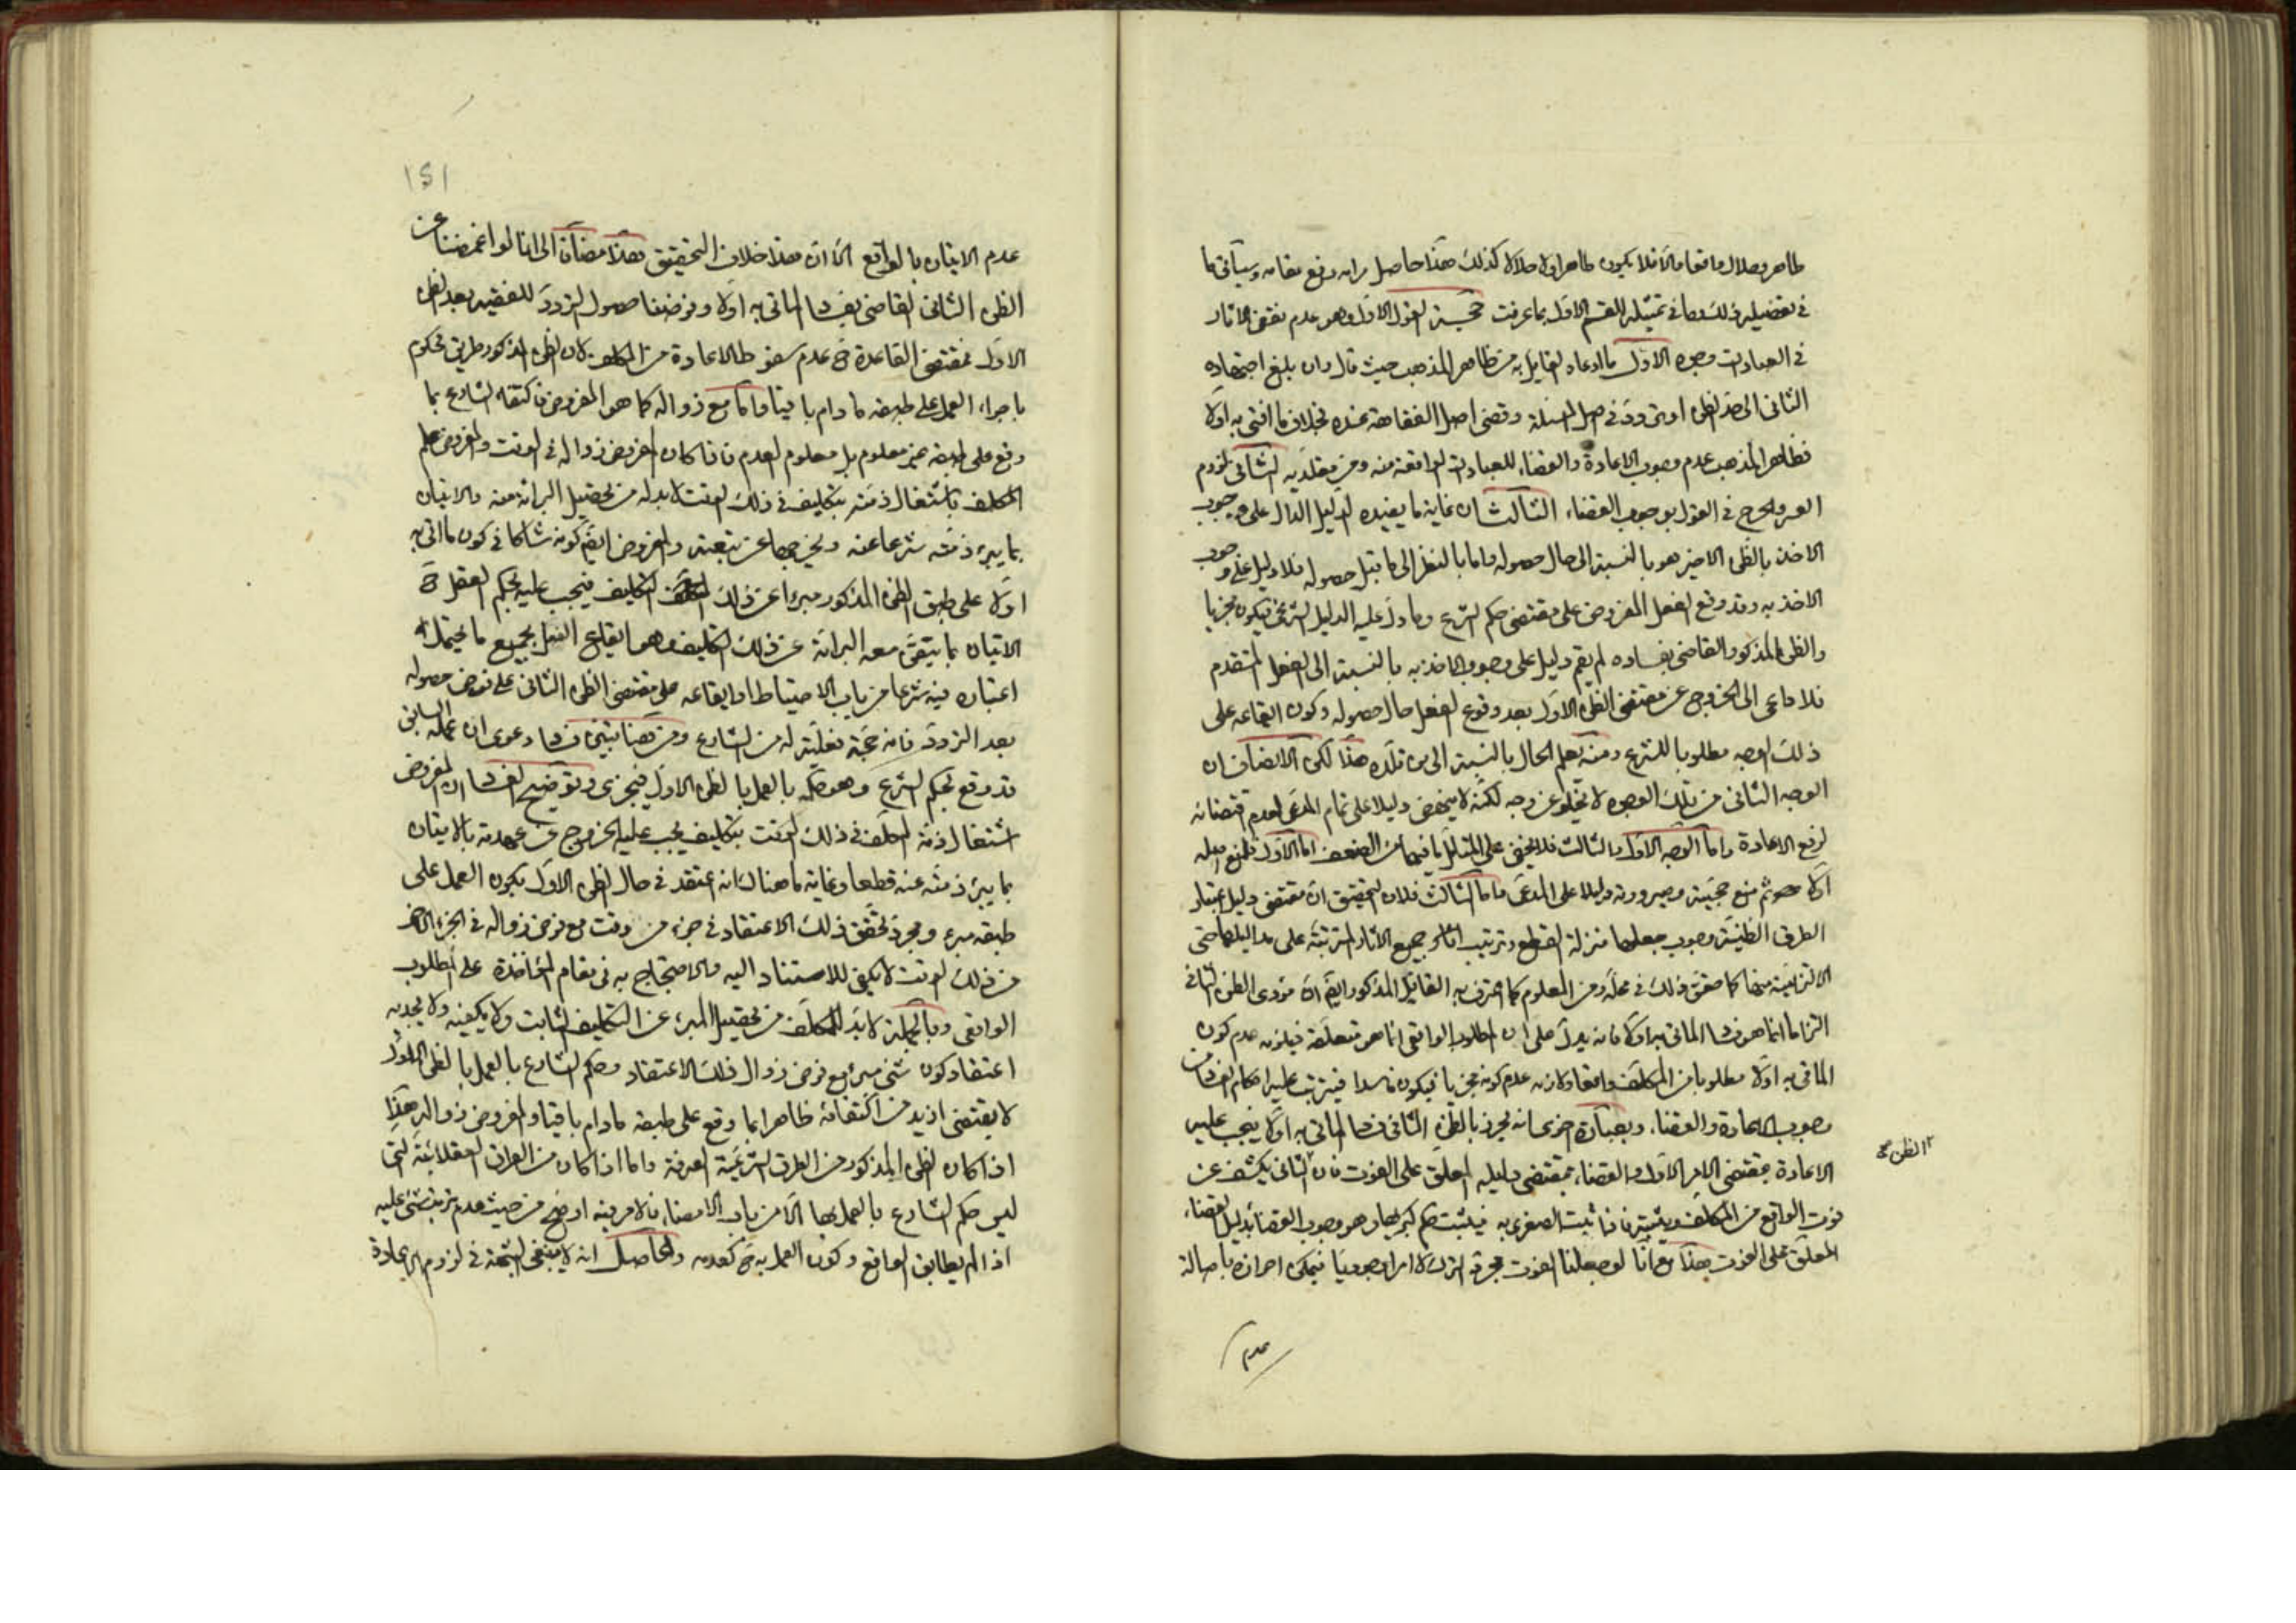 طاهر وحلال واقعا والا فلا يكون طاهرا ولا حلالا كذلك هذا حاصل مرامه رفع مقامه وسيأتي ما
في تفصيله ذلك وما في تمثيله للقسم الاول بما عرفت حجية القول الاول وهو عدم نقض الاثار
في العبادات وجوه الاول ما ادعاه القايل به من ظاهر المذهب حيث قال وان بلغ اجتهاده
الثاني الى حد الظن او تردد في اصل المسئلة وقضى اصل الفقاهة عنده بخلاف ما افتى به اولا
فظاهر المذهب عدم وجوب الاعادة والقضاء للعبادات الواقعة منه ومن مقلديه الثاني لزوم
العسر والحرج في القول بوجوب القضاء الثالث ان غاية ما يفيده الدليل الدال على وجوب
الاخذ بالظن الاخير هو بالنسبة الى حال حصوله واما بالنظر الى ما قبل حصوله فلا دليل على وجوب
الاخذ به وقد وقع الفعل المفروض على مقتضى حكم الشرع وما دل عليه الدليل الشرعي فيكون مجزيا
والظن المذكور القاضي بفساده لم يقم دليل على وجوب الاخذ به بالنسبة الى الفعل المتقدم
فلا داعي الى الخروج عن مقتضى الظن الاول بعد وقوع الفعل حال حصوله وكون ايقاعه على
ذلك الوجه مطلوبا للشرع ومنه يعلم الحال بالنسبة الى من قلده هذا لكن الانصاف ان
الوجه الثاني من تلك الوجوه لا يخلو عن وجه لكنه لا ينهض دليلا على تمام المدعى لعدم اقتضائه
لرفع الاعادة واما الوجه الاول والثالث فلا يخفى على المتأمل ما فيهما من الضعف اما الاول فلمنع اصله
اولا ثم منع حجيته وصيرورته دليلا على المدعى واما الثالث فلان التحقيق ان مقتضى دليل اعتبار
الطرق الظنية وجوب جعلها منزلة القطع وترتيب جميع الاثار المترتبة على مداليلها حتى
الالتزامية منها كما حقق ذلك في محله ومن المعلوم كما اعترف به القايل المذكور ايضا ان مؤدى الظن الثاني
التزاما انما هو فساد الماتى به اولا فانه يدل على ان المطلوب الواقعي انما هو متعلقه فيلزمه عدم كون
الماتى به اولا مطلوبا من المكلف واقعا ولازمه عدم كونه مجزيا فيكون فاسدا فيترتب عليه احكام الفساد من
وجوب الاعادة والقضاء وبعبارة اخرى انه يحرز بالظن الثاني فساد الماتى به اولا فيجب عليه
الاعادة بمقتضى الامر الاول والقضاء بمقتضى دليله المعلق على الفوت فان الثاني يكشف عن
الظن
فوت الواقع من المكلف ويثبته فاذا ثبت الصغرى به فيثبت حكم كبريها وهو وجوب القضاء بدليل القضاء
المعلق على الفوت هذا مع انا لو جعلنا الفوت مجرد الترك لا امرا وجوديا فيمكن احرازه باصالة
عدم
١٥١
عدم الاتيان بالواقع الا ان هذا خلاف التحقيق هذا مضافا الى انا لو اغمضنا عن
الظن الثاني القاضي بفساد الماتى به اولا وفرضنا حصول التردد للفقيه بعد الظن
الاول فمقتضى القاعدة ح عدم سقوط الاعادة من المكلف لان الظن المذكور طريق محكوم
باجراء العمل على طبقه ما دام باقيا واما مع زواله كما هو المفروض فاكتفاء الشارع بما
وقع على طبقه غير معلوم بل معلوم العدم فاذا كان المفروض زواله في الوقت والمفروض علم
المكلف باشتغال ذمته بتكليف في ذلك الوقت لا بد له من تحصيل البرائة منه والاتيان
بما يبرء ذمته شرعا عنه ويخرجها عن تبعته والمفروض ايضا كونه شاكا في كون ما اتى به
اولا على طبق الظن المذكور مبرءا عن ذلك التكليف فيجب عليه بحكم العقل ح
الاتيان بما يتيقن معه البرائة عن ذلك التكليف وهو ايقاع الفعل بجميع ما يحتمل
اعتباره فيه شرعا من باب الاحتياط او ايقاعه على مقتضى الظن الثاني على فرض حصوله
بعد التردد فانه حجة فعلية له من الشارع ومن هنا تبين فساد دعوى ان عمله السابق
قد وقع بحكم الشرع وهو حكمه بالعمل بالظن الاول فيجزي وتوضيح الفساد ان المفروض
اشتغال ذمة المكلف في ذلك الوقت بتكليف يجب عليه الخروج عن عهدته بالاتيان
بما يبرئ ذمته عنه قطعا وغاية ما هناك انه اعتقد في حال الظن الاول بكون العمل على
طبقه مبرء ومجرد تحقق ذلك الاعتقاد في جزء من وقت مع فرض زواله في الجزء الاخر
من ذلك الوقت لا يكفي للاستناد اليه والاحتجاج به في مقام المؤاخذة على المطلوب
الواقعي وبالجملة لا بد للمكلف من تحصيل المبرء عن التكليف الثابت ولا يكفيه ولا يجديه
اعتقاد كون شئ مبرء مع فرض زوال ذلك الاعتقاد وحكم الشارع بالعمل بالظن الاول
لا يقتضى ازيد من اكتفائه ظاهرا بما وقع على طبقه ما دام باقيا والمفروض زواله هذا
اذا كان الظن المذكور من الطرق الشرعية الصرفة واما اذا كان من الطرق العقلائية التي
ليس حكم الشارع بالعمل بها الا من باب الامضاء فالامر فيه اوضح من حيث عدم ترتب شئ عليه
اذا لم يطابق الواقع وكون العمل به ح كعدمه والحاصل انه لا ينبغي الشبهة في لزوم الاعادة